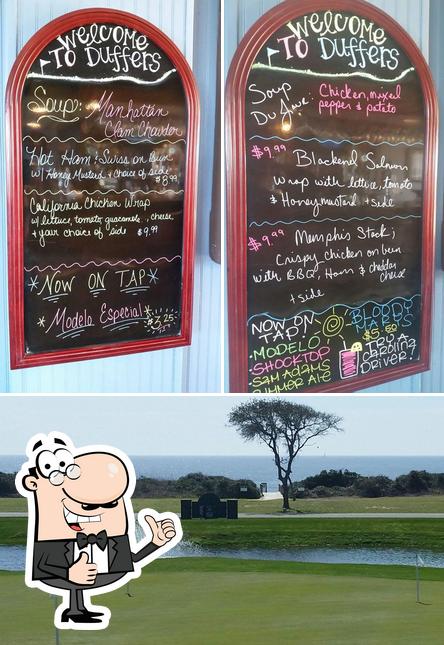 WELCOME
TO DUFFERS
Soup: Manhattan
Clam Chowder
Hot Ham & Swiss on Bun
w/ Honey Mustard & Choice of side
$8.99
California Chicken Wrap
w/ lettuce, tomato guacamole, cheese
+ your choice of side $9.99
*NOW ON TAP*
*Modelo Especial*
$3.25
WELCOME
TO DUFFERS
Soup Chicken, mixed
Du Jour: pepper & potato
$9.99 Blackend Salmon
wrap with lettice, tomato
& Honeymustard + side
$9.99 Memphis Stack;
Crispy chicken on bun
with BBQ, Ham & cheddar
cheese
+ side
NOW ON
TAP
MODELO
SHOCKTOP
SAM ADAMS
SUMMER ALE
BLOODY
MARYS
$5.50
TRY A
CAROLINA
DRIVER!